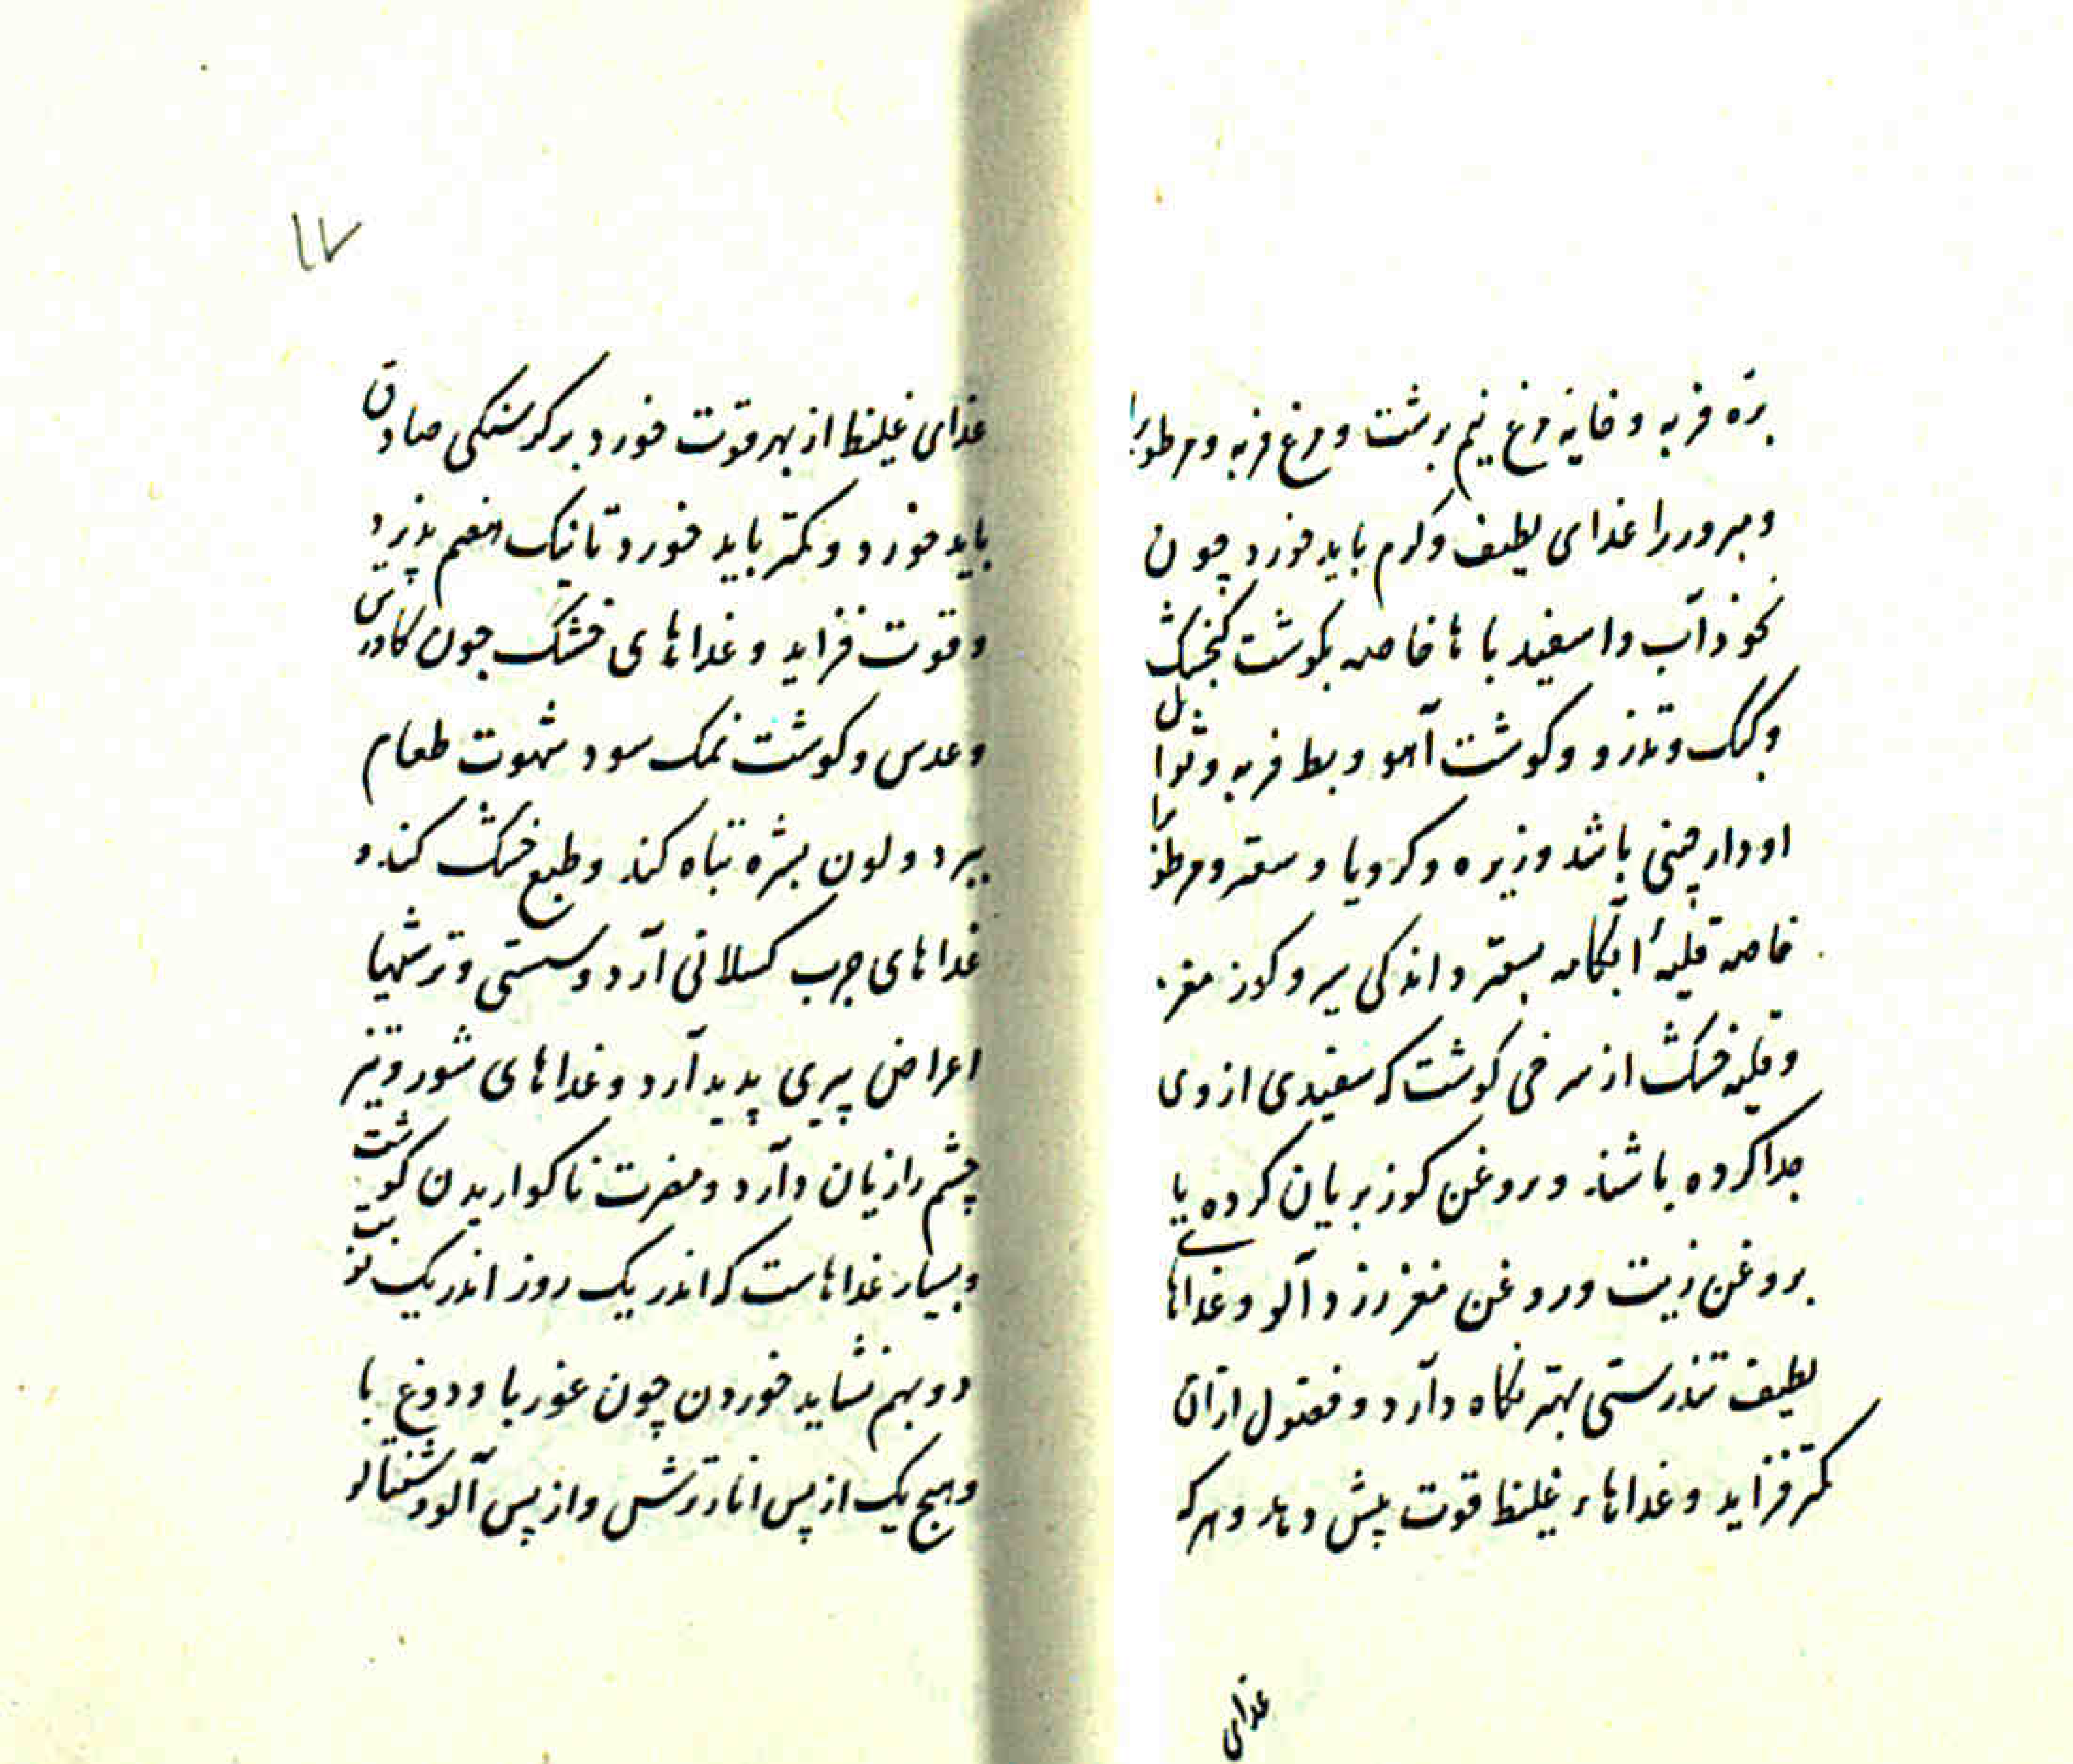 بره فربه و خایه مرغ نیم برشت و مرغ فربه و مرطوبرا
و مبرور را غذای لطیف و کرم باید خورد چون
نخوذآب و اسفید با ها خاصه بکوشت کنجشک
و کبک و تذرو و کوشت آهو و بط فربه و توابل
او دارچینی باشد و زیره و کرویا و سعتر و مرطوبرا
خاصه قلیهٔ ابکامه بسعتر و اندکی سیر و کوز مغز
و قلیه خشک از سرخی کوشت که سفیدی از وی
جدا کرده باشند و بروغن کوز بریان کرده یا
بروغن زیت و روغن مغز زرد آلو و غذاهاے
لطیف تندرستی بهتر نکاه دارد و فضول از ان
کمتر فزاید و غذاهاء غلیظ قوت بیش دهد و هرکه
غذای
۱۷
غذای غلیظ از بهر قوت خورد بر کرسنکی صادق
باید خورد و کمتر باید خورد تا نیک هضم پذیرد
و قوت فزاید و غذاهای خشک چون کاورس
و عدس و کوشت نمک سود شهوت طعام
ببرد و لون بشره تباه کند و طبع خشک کند و
غذاهای چرب کسلانی آرد و سستی و ترشیها
اعراض پیری پدید آرد و غذاهای شور و تیز
چشم را زیان دارد و مضرت ناکواریدن کوشت
و بسیار غذاهاست که اندر یک روز اندر یک نوبت
دو بهم نشاید خوردن چون غوربا و دوغ با
و هیچ یک از پس انار ترش و از پس آلو و شفتالو